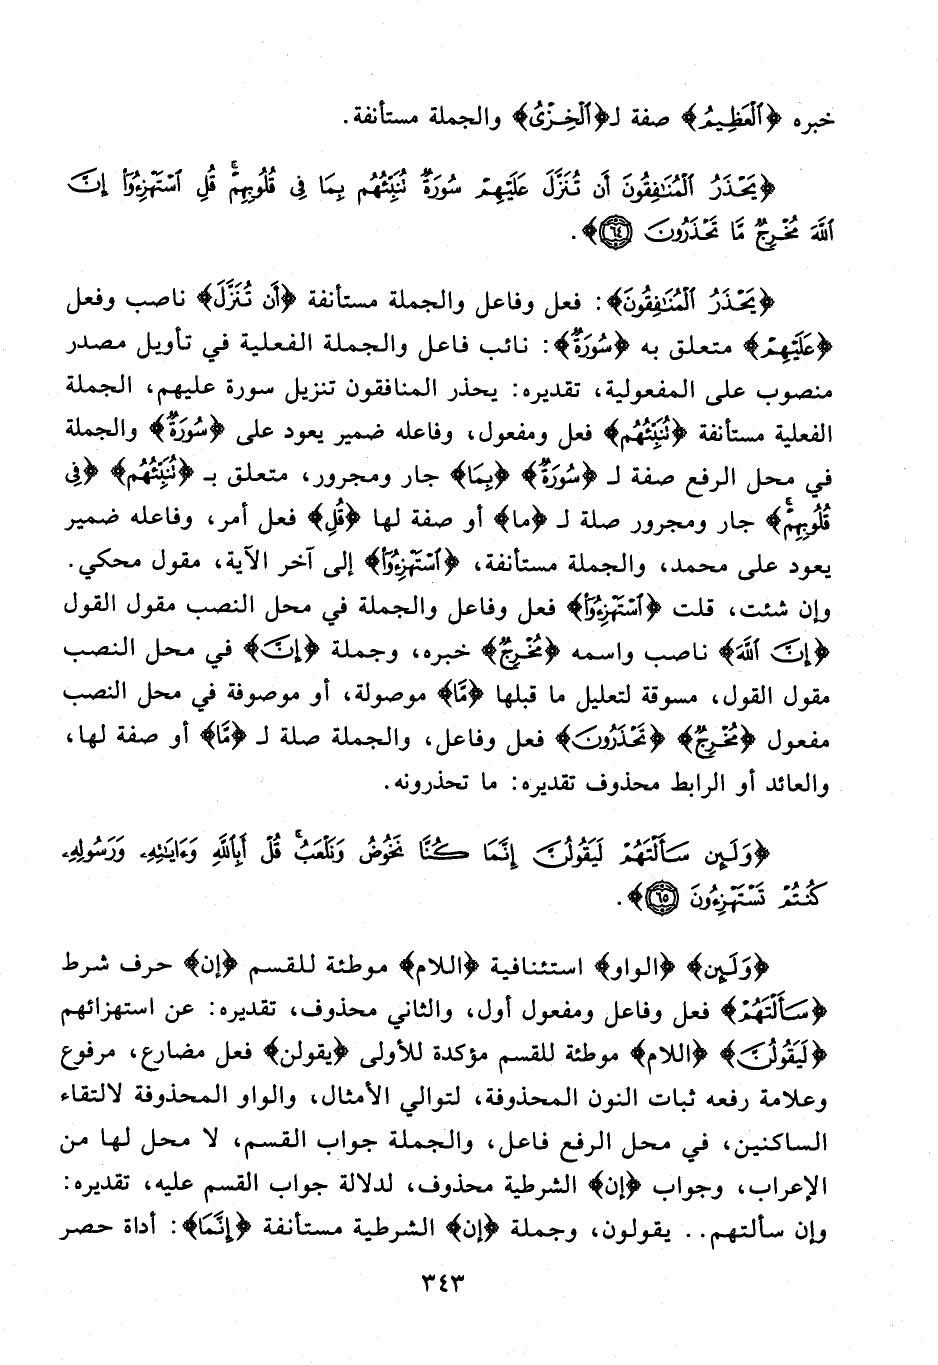 خبره ﴿ٱلْعَظِيمُ﴾ صفة لـ﴿ٱلْخِزْىُ﴾ والجملة مستأنفة.
﴿يَحْذَرُ ٱلْمُنَٰفِقُونَ أَن تُنَزَّلَ عَلَيْهِمْ سُورَةٌ تُنَبِّئُهُم بِمَا فِى قُلُوبِهِمْ ۚ قُلِ ٱسْتَهْزِءُوٓا۟ إِنَّ
ٱللَّهَ مُخْرِجٌ مَّا تَحْذَرُونَ ٦٤﴾.
﴿يَحْذَرُ ٱلْمُنَٰفِقُونَ﴾: فعل وفاعل والجملة مستأنفة ﴿أَن تُنَزَّلَ﴾ ناصب وفعل
﴿عَلَيْهِمْ﴾ متعلق به ﴿سُورَةٌ﴾: نائب فاعل والجملة الفعلية في تأويل مصدر
منصوب على المفعولية، تقديره: يحذر المنافقون تنزيل سورة عليهم، الجملة
الفعلية مستأنفة ﴿تُنَبِّئُهُم﴾ فعل ومفعول، وفاعله ضمير يعود على ﴿سُورَةٌ﴾ والجملة
في محل الرفع صفة لـ ﴿سُورَةٌ﴾ ﴿بِمَا﴾ جار ومجرور، متعلق بـ ﴿تُنَبِّئُهُم﴾ ﴿فِى
قُلُوبِهِمْ ۚ﴾ جار ومجرور صلة لـ ﴿ما﴾ أو صفة لها ﴿قُلِ﴾ فعل أمر، وفاعله ضمير
يعود على محمد، والجملة مستأنفة، ﴿ٱسْتَهْزِءُوٓا۟﴾ إلى آخر الآية، مقول محكي.
وإن شئت، قلت ﴿ٱسْتَهْزِءُوٓا۟﴾ فعل وفاعل والجملة في محل النصب مقول القول
﴿إِنَّ ٱللَّهَ﴾ ناصب واسمه ﴿مُخْرِجٌ﴾ خبره، وجملة ﴿إِنَّ﴾ في محل النصب
مقول القول، مسوقة لتعليل ما قبلها ﴿مَّا﴾ موصولة، أو موصوفة في محل النصب
مفعول ﴿مُخْرِجٌ﴾ ﴿تَحْذَرُونَ﴾ فعل وفاعل، والجملة صلة لـ ﴿مَّا﴾ أو صفة لها،
والعائد أو الرابط محذوف تقديره: ما تحذرونه.
﴿وَلَئِن سَأَلْتَهُمْ لَيَقُولُنَّ إِنَّمَا كُنَّا نَخُوضُ وَنَلْعَبُ ۚ قُلْ أَبِٱللَّهِ وَءَايَٰتِهِۦ وَرَسُولِهِۦ
كُنتُمْ تَسْتَهْزِءُونَ ٦٥﴾.
﴿وَلَئِن﴾ ﴿الواو﴾ استئنافية ﴿اللام﴾ موطئة للقسم ﴿إن﴾ حرف شرط
﴿سَأَلْتَهُمْ﴾ فعل وفاعل ومفعول أول، والثاني محذوف، تقديره: عن استهزائهم
﴿لَيَقُولُنَّ﴾ ﴿اللام﴾ موطئة للقسم مؤكدة للأولى ﴿يقولن﴾ فعل مضارع، مرفوع
وعلامة رفعه ثبات النون المحذوفة، لتوالي الأمثال، والواو المحذوفة لالتقاء
الساكنين، في محل الرفع فاعل، والجملة جواب القسم، لا محل لها من
الإعراب، وجواب ﴿إن﴾ الشرطية محذوف، لدلالة جواب القسم عليه، تقديره:
وإن سألتهم.. يقولون، وجملة ﴿إن﴾ الشرطية مستأنفة ﴿إِنَّمَا﴾: أداة حصر
٣٤٣